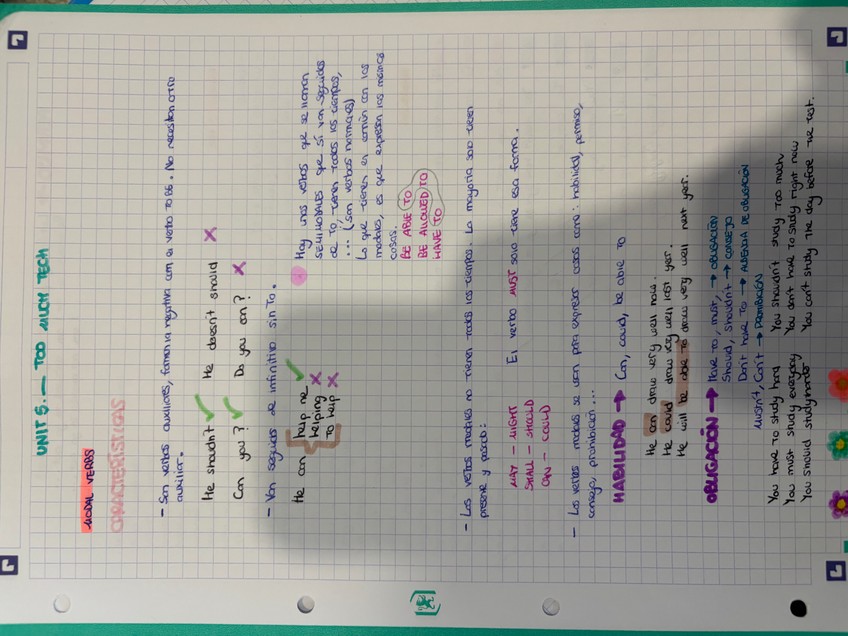 UNIT 5. — TOO MUCH TECH
MODAL VERBS
CARACTERÍSTICAS
- Son verbos auxiliares, forman la negativa con el verbo TO BE. No necesitan otro
auxiliar.
He shouldn't ✓ He doesn't should X
Can you? ✓ Do you can? X
- Van seguidos de infinitivo sin To.
He can { help me ✓
helping X
To help X
Hay unos verbos que se llaman
SEMIMODALES que sí van seguidos
de To, tienen todos los tiempos,
... (son verbos normales)
Lo que tienen en común con los
modales, es que expresan las mismas
cosas.
BE ABLE TO
BE ALLOWED TO
HAVE TO
- Los verbos modales no tienen todos los tiempos. La mayoría solo tienen
presente y pasado:
MAY - MIGHT
SHALL - SHOULD
CAN - COULD
El verbo MUST solo tiene esa forma.
- Los verbos modales se usan para expresar cosas como: habilidad, permiso,
consejo, prohibición...
HABILIDAD → Can, could, be able to
He can draw very well now.
He could draw very well last year.
He will be able to draw very well next year.
OBLIGACIÓN → Have to, must, → OBLIGACIÓN
Should, Shouldn't → CONSEJO
Don't have to → AUSENCIA DE OBLIGACIÓN
Mustn't, Can't → PROHIBICIÓN
You have to study hard
You must study everyday
You should study harder
You shouldn't study too much
You don't have to study right now
You can't study the day before the test.